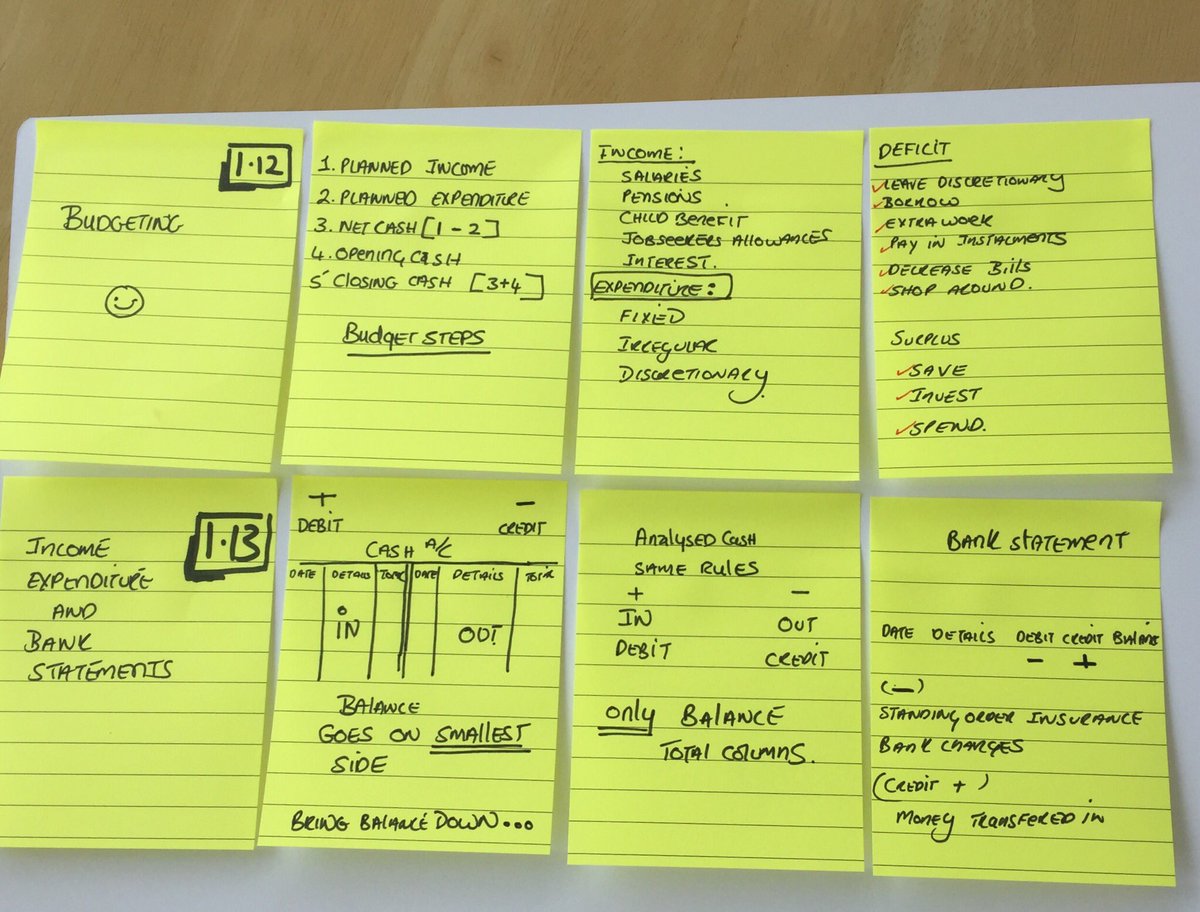 1.12
BUDGETING
1. PLANNED INCOME
2. PLANNED EXPENDITURE
3. NET CASH [1 - 2]
4. OPENING CASH
5 CLOSING CASH [3+4]
Budget STEPS
INCOME:
SALARIES
PENSIONS
CHILD BENEFIT
JOBSEEKERS ALLOWANCES
INTEREST.
EXPENDITURE:
FIXED
IRREGULAR
DISCRETIONARY.
DEFICIT
✓LEAVE DISCRETIONARY
✓BORROW
✓EXTRA WORK
✓PAY IN INSTALMENTS
✓DECREASE Bills
✓SHOP AROUND.
SURPLUS
✓SAVE
✓INVEST
✓SPEND.
1.13
INCOME
EXPENDITURE
AND
BANK
STATEMENTS
+ −
DEBIT CREDIT
CASH A/C
DATE DETAILS TOTAL DATE DETAILS TOTAL
IN OUT
BALANCE
GOES ON SMALLEST
SIDE
BRING BALANCE DOWN...
Analysed Cash
SAME RULES
+ −
IN OUT
DEBIT CREDIT
only BALANCE
TOTAL COLUMNS.
BANK STATEMENT
DATE DETAILS DEBIT CREDIT BALANCE
− +
(−)
STANDING ORDER INSURANCE
BANK CHARGES
(CREDIT +)
MONEY TRANSFERED IN